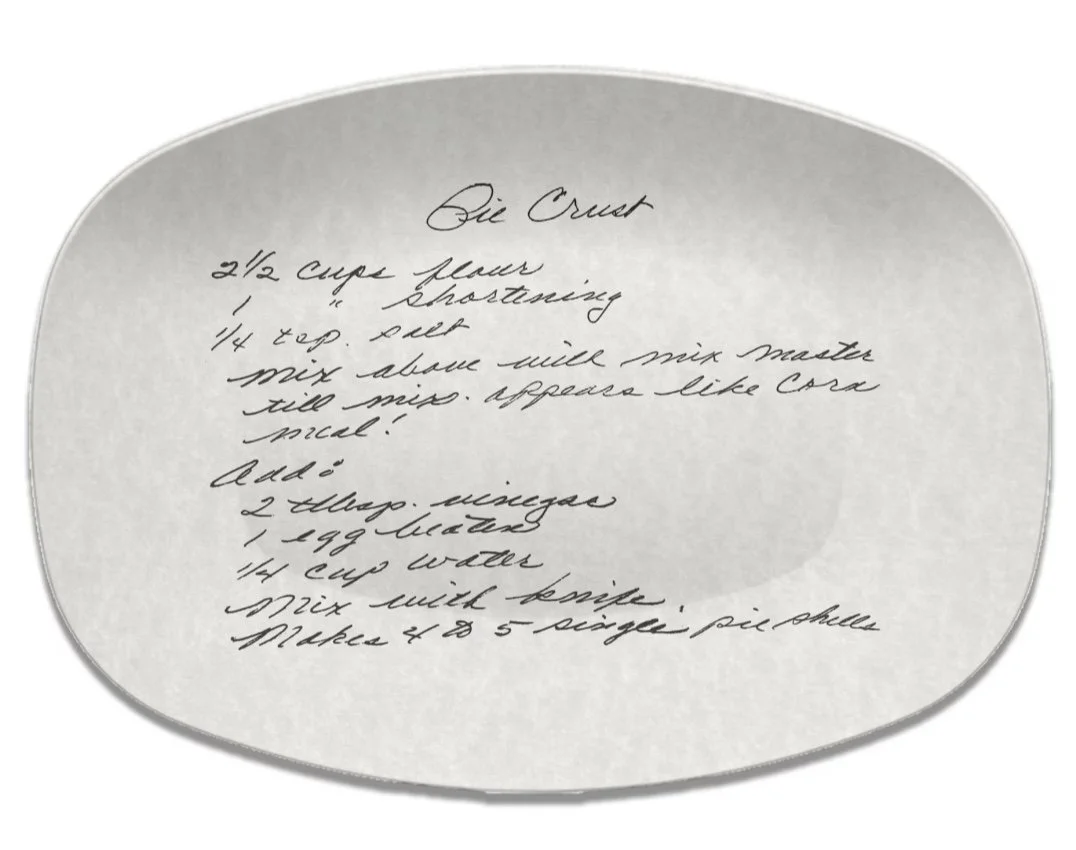 Pie Crust
2 1/2 cups flour
1 " shortening
1/4 tsp. salt
mix above with mix master
till mix. appears like corn
meal!
Add:
2 tbbsp. vinegar
1 egg beaten
1/4 cup water
Mix with knife.
Makes 4 to 5 single pie shells